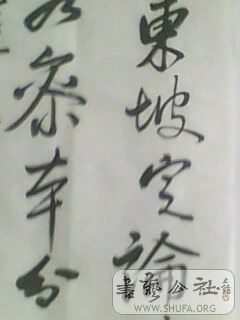 東坡定論
參夲分
書藝公社
WWW.SHUFA.ORG